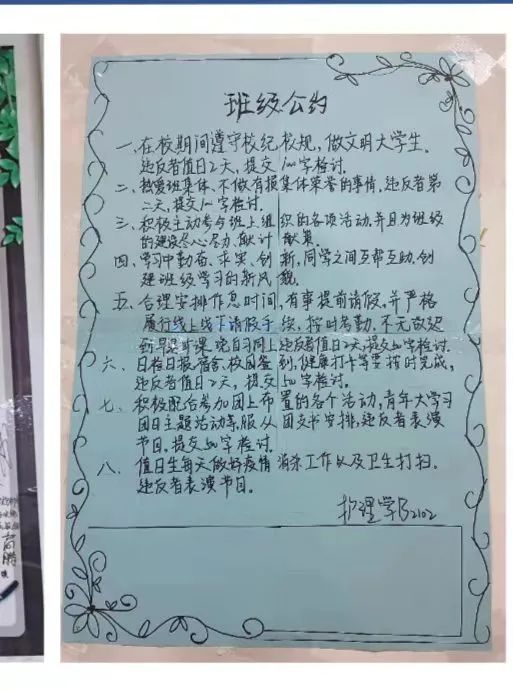 班级公约
一、在校期间遵守校纪校规，做文明大学生。
违反者值日2天，提交1000字检讨。
二、热爱班集体、不做有损集体荣誉的事情，违反者第
二天，提交1000字检讨。
三、积极主动参与班上组织的各项活动，并且为班级
的建设尽心尽力、献计献策。
四、学习中勤奋、求实、创新，同学之间互帮互助、创
建班级学习的新风貌。
五、合理安排作息时间，有事提前请假，并严格
履行线上线下请假手续，按时考勤，不无故迟
到早退旷课，晚自习同上违反者值日2天，提交1000字检讨。
六、日检日报宿舍、校园签到，健康打卡等要按时完成，
违反者值日2天，提交1000字检讨。
七、积极配合参加团上布置的各个活动，青年大学习
团日主题活动等，服从团支书安排，违反者表演
节目，提交1000字检讨。
八、值日生每天做好疫情消杀工作以及卫生打扫。
违反者表演节目。
护理学B2102